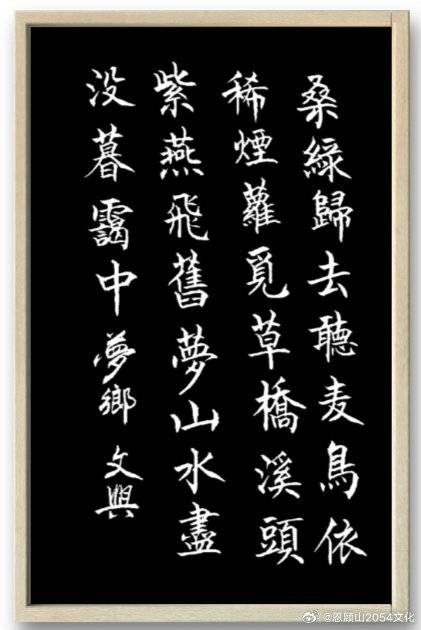 桑綠歸去聽麦鳥依
稀煙蘿覓草橋溪頭
紫燕飛舊夢山水盡
没暮靄中夢鄉文興
@恩顾山2054文化